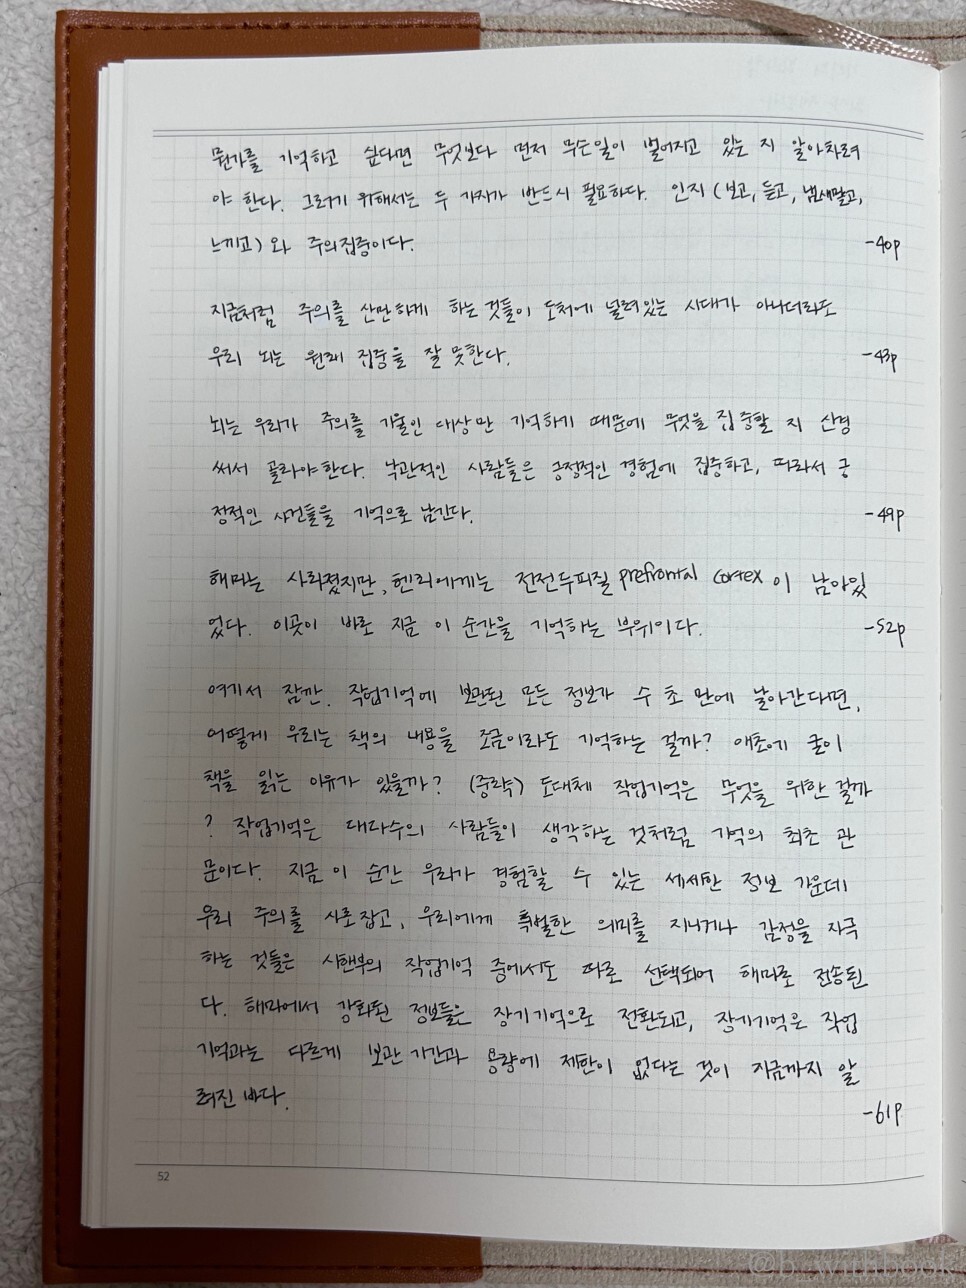 뭔가를 기억하고 싶다면 무엇보다 먼저 무슨일이 벌어지고 있는 지 알아차려
야 한다. 그러기 위해서는 두 가지가 반드시 필요하다. 인지 (보고, 듣고, 냄새맡고,
느끼고) 와 주의집중이다.
-40p
지금처럼 주의를 산만하게 하는 것들이 도처에 널려있는 시대가 아니더라도
우리 뇌는 원래 집중을 잘 못한다.
-43p
뇌는 우리가 주의를 기울인 대상만 기억하기 때문에 무엇을 집중할 지 신경
써서 골라야한다. 낙관적인 사람들은 긍정적인 경험에 집중하고, 따라서 긍
정적인 사건들을 기억으로 남긴다.
-49p
해마는 사라졌지만, 헨리에게는 전전두피질 prefrontal cortex 이 남아있
었다. 이곳이 바로 지금 이 순간을 기억하는 부위이다.
-52p
여기서 잠깐. 작업기억에 보관된 모든 정보가 수 초 만에 날아간다면,
어떻게 우리는 책의 내용을 조금이라도 기억하는 걸까? 애초에 굳이
책을 읽는 이유가 있을까? (중략) 도대체 작업기억은 무엇을 위한 걸까
? 작업기억은 대다수의 사람들이 생각하는 것처럼 기억의 최초 관
문이다. 지금 이 순간 우리가 경험할 수 있는 세세한 정보 가운데
우리 주의를 사로잡고, 우리에게 특별한 의미를 지니거나 감정을 자극
하는 것들은 작업기억 중에서도 따로 선택되어 해마로 전송된
다. 해마에서 강화된 정보들은 장기기억으로 전환되고, 장기기억은 작업
기억과는 다르게 보관 기간과 용량에 제한이 없다는 것이 지금까지 알
려진 바다.
-61p
52